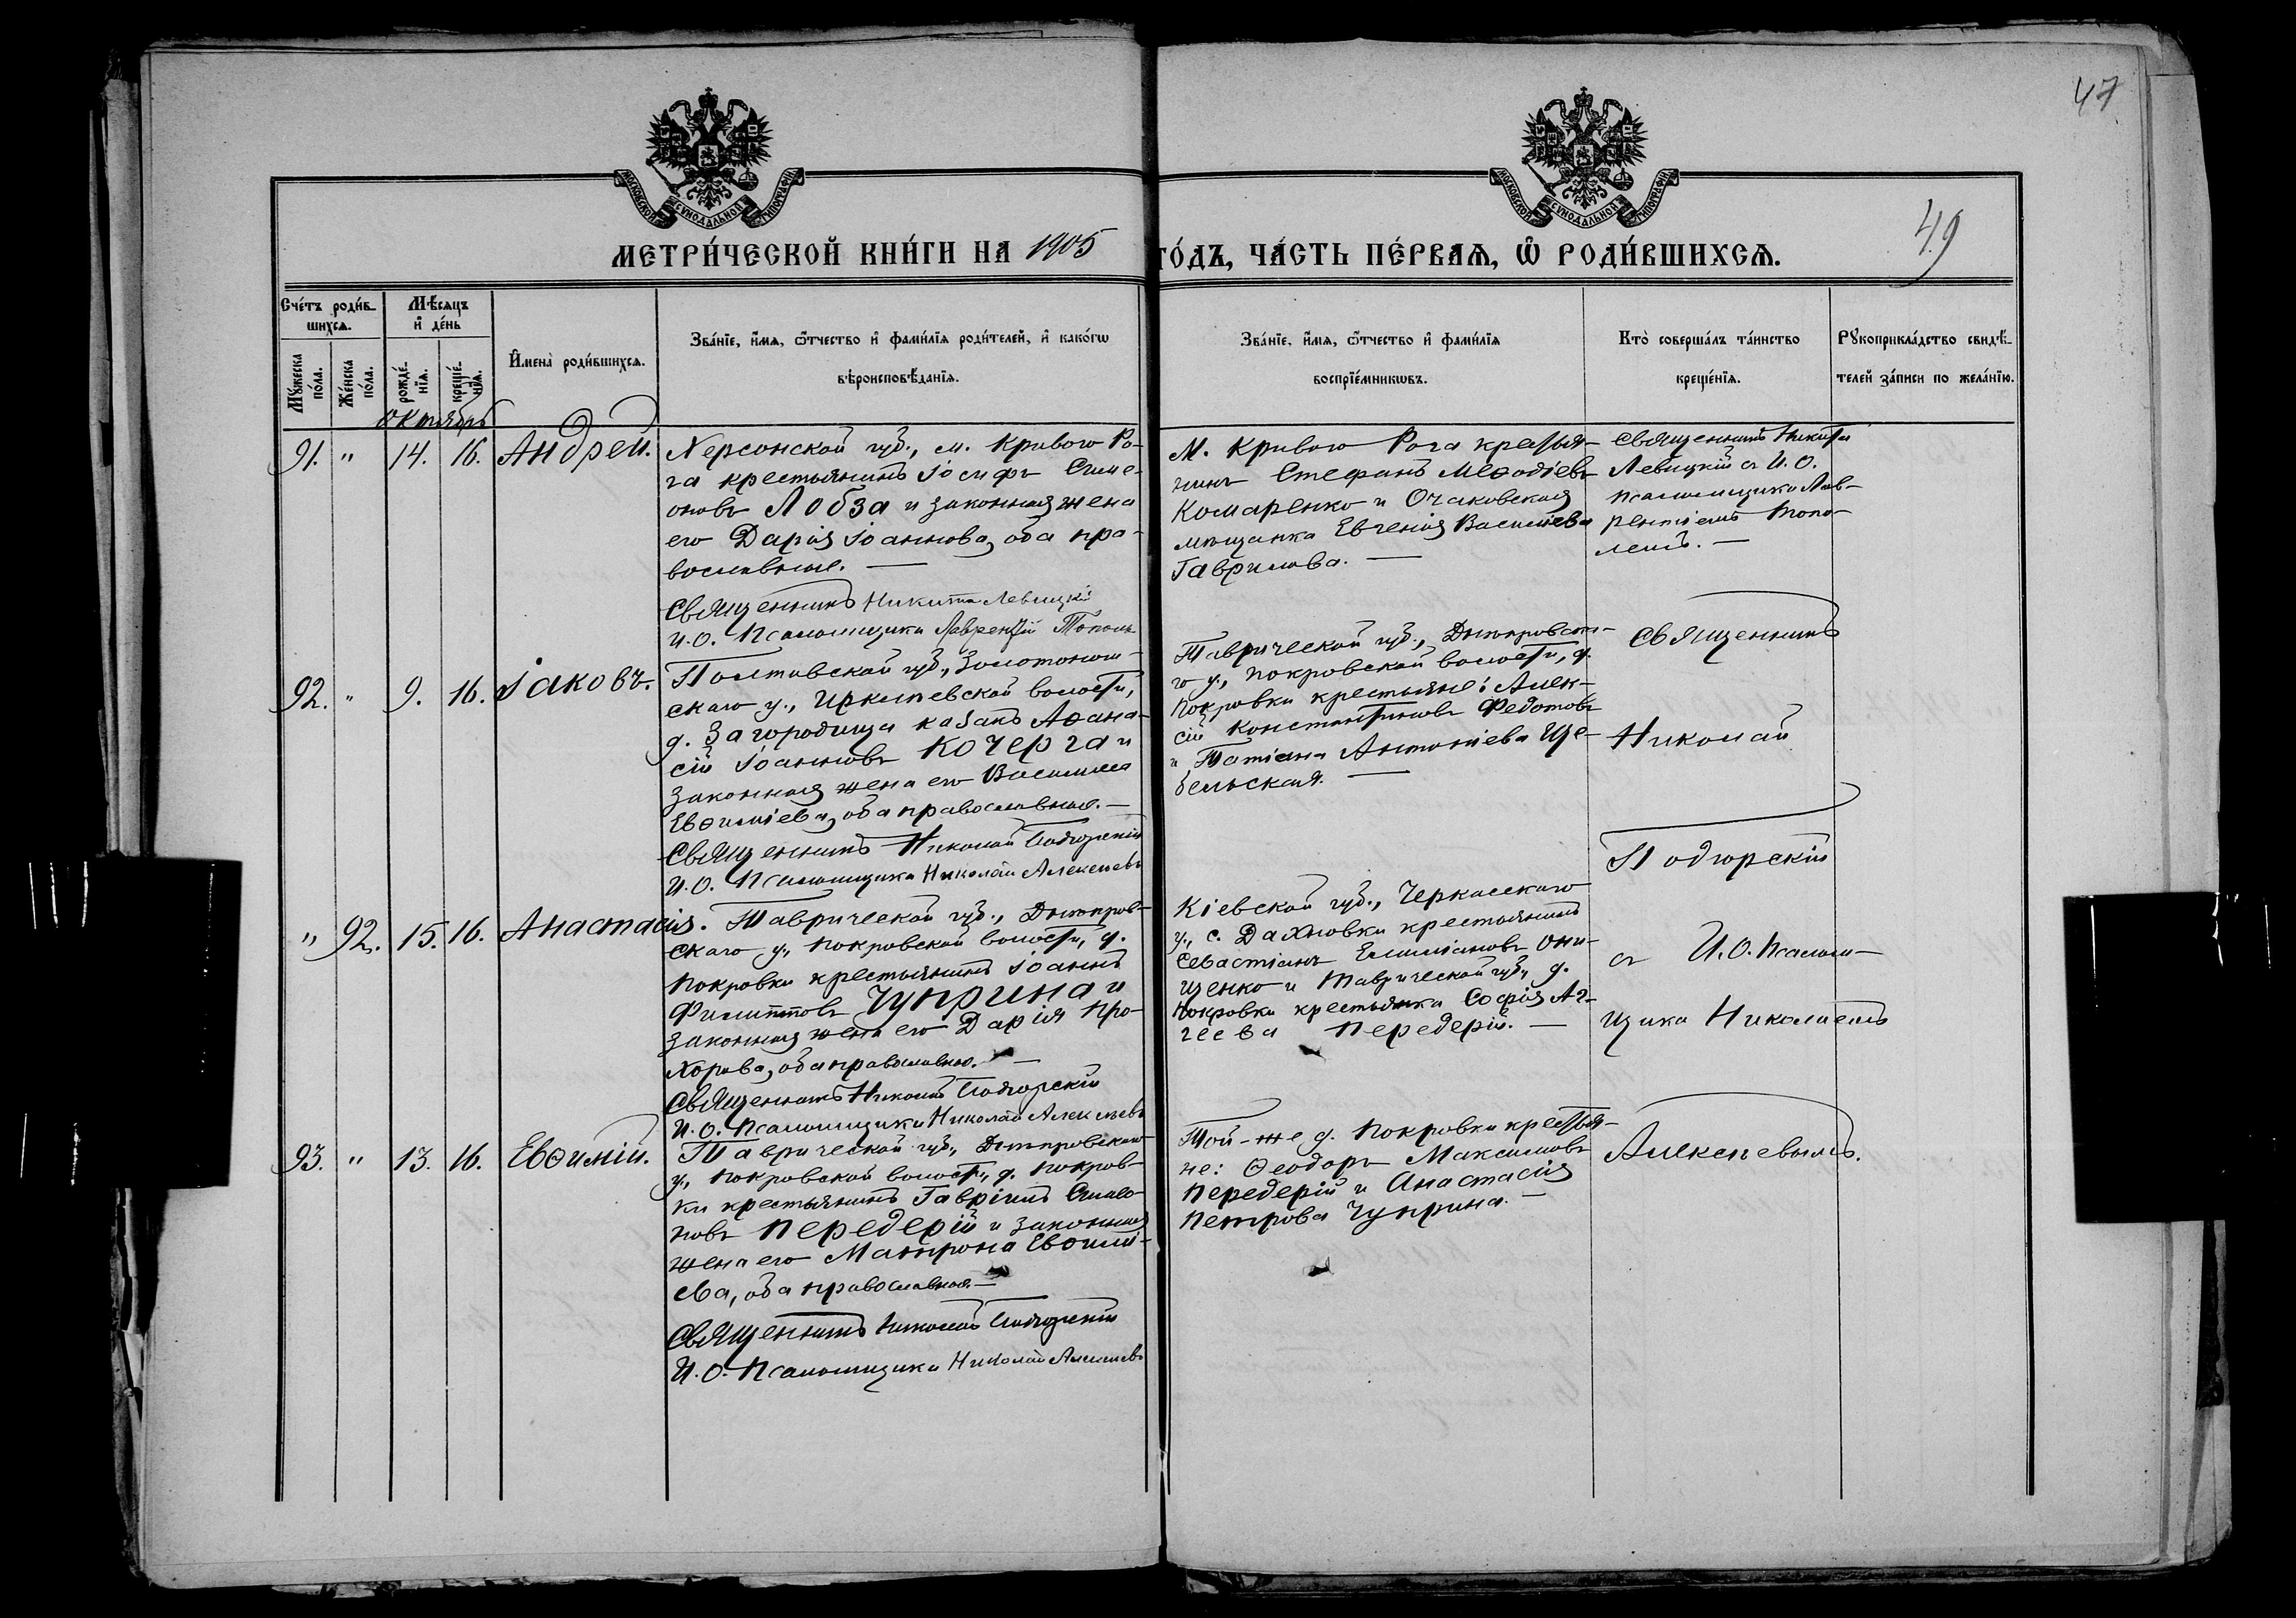 47
МОСКОВСКОЙ СУНОДАЛЬНОЙ ТИПОГРАФІИ
МОСКОВСКОЙ СУНОДАЛЬНОЙ ТИПОГРАФІИ
МЕТРИ́ЧЕСКОЙ КНИ́ГИ НА 1905 ГО́ДЪ, ЧА́СТЬ ПЕ́РВАЯ, Ѡ҆ РОДИ́ВШИХСЯ.
49
Сче́тъ роди́в-
шихся.
Мѣ́сяцъ
и҆ де́нь
Мꙋ́жеска
по́ла.
Же́нска
по́ла.
рожде́-
нїя.
креще́-
нїя.
И҆мена̀ роди́вшихся.
Зва́нїе, и҆́мя, ѻ҆́тчество и҆ фами́лїя роди́телей, и҆ како́гѡ
вѣроисповѣ́данїя.
Зва́нїе, и҆́мя, ѻ҆́тчество и҆ фами́лїя
воспрїе́мникѡвъ.
Кто̀ соверша́лъ та́инство
креще́нїя.
Рꙋкоприкла́дство свидѣ́-
телей за́писи по жела́нїю.
Октябрь
91. " 14. 16. Андрей.
Херсонской губ., м. Кривого Ро-
га крестьянинъ Іосифъ Симе-
оновъ Лобза и законная жена
его Дарія Іоаннова, оба пра-
вославные. —
Священникъ Никита Левицкій
И.О. Псаломщика Лаврентій Тополь
М. Кривого Рога крестья-
нинъ Стефанъ Меѳодіевъ
Комаренко и Очаковская
мѣщанка Евгенія Васильева
Гаврилова. —
Священникъ Никита
Левицкій съ И.О.
псаломщика Лав-
рентіемъ Топо-
лемъ. —
92. " 9. 16. Іаковъ.
Полтавской губ., Золотонош-
скаго у., Ирклѣевской волости,
д. Загородища казакъ Аѳана-
сій Іоанновъ Кочерга и
законная жена его Василисса
Евѳиміева, оба православные. —
Священникъ Николай Подгорскій
И.О. Псаломщика Николай Алексѣевъ
Таврической губ., Днѣпровска-
го у., Покровской волости, д.
Покровки крестьяне: Алек-
сій Константиновъ Федотовъ
и Татіана Антоніева Ще-
бельская. —
Священникъ
Николай
Подгорскій
" 92. 15. 16. Анастасія.
Таврической губ., Днѣпров-
скаго у., Покровской волости, д.
Покровки крестьянинъ Іоаннъ
Филипповъ Чуприна и
законная жена его Дарія Про-
хорова, оба православные. —
Священникъ Николай Подгорскій
И.О. Псаломщика Николай Алексѣевъ
Кіевской губ., Черкасскаго
у., с. Дахновки крестьянинъ
Севастіанъ Емиліановъ Они-
щенко и Таврической губ., д.
Покровки крестьянка Софія Аг-
геева Передерій. —
съ И.О. Псалом-
щика Николаемъ
93. " 13. 16. Евѳимій.
Таврической губ., Днѣпровскаго
у., Покровской волости, д. Покров-
ки крестьянинъ Гавріилъ Симео-
новъ Передерій и законная
жена его Матрона Евѳимі-
ева, оба православные. —
Священникъ Николай Подгорскій
И.О. Псаломщика Николай Алексѣевъ
Той-же д. Покровки крестья-
не: Ѳеодоръ Максимовъ
Передерій и Анастасія
Петрова Чуприна. —
Алексѣевымъ.